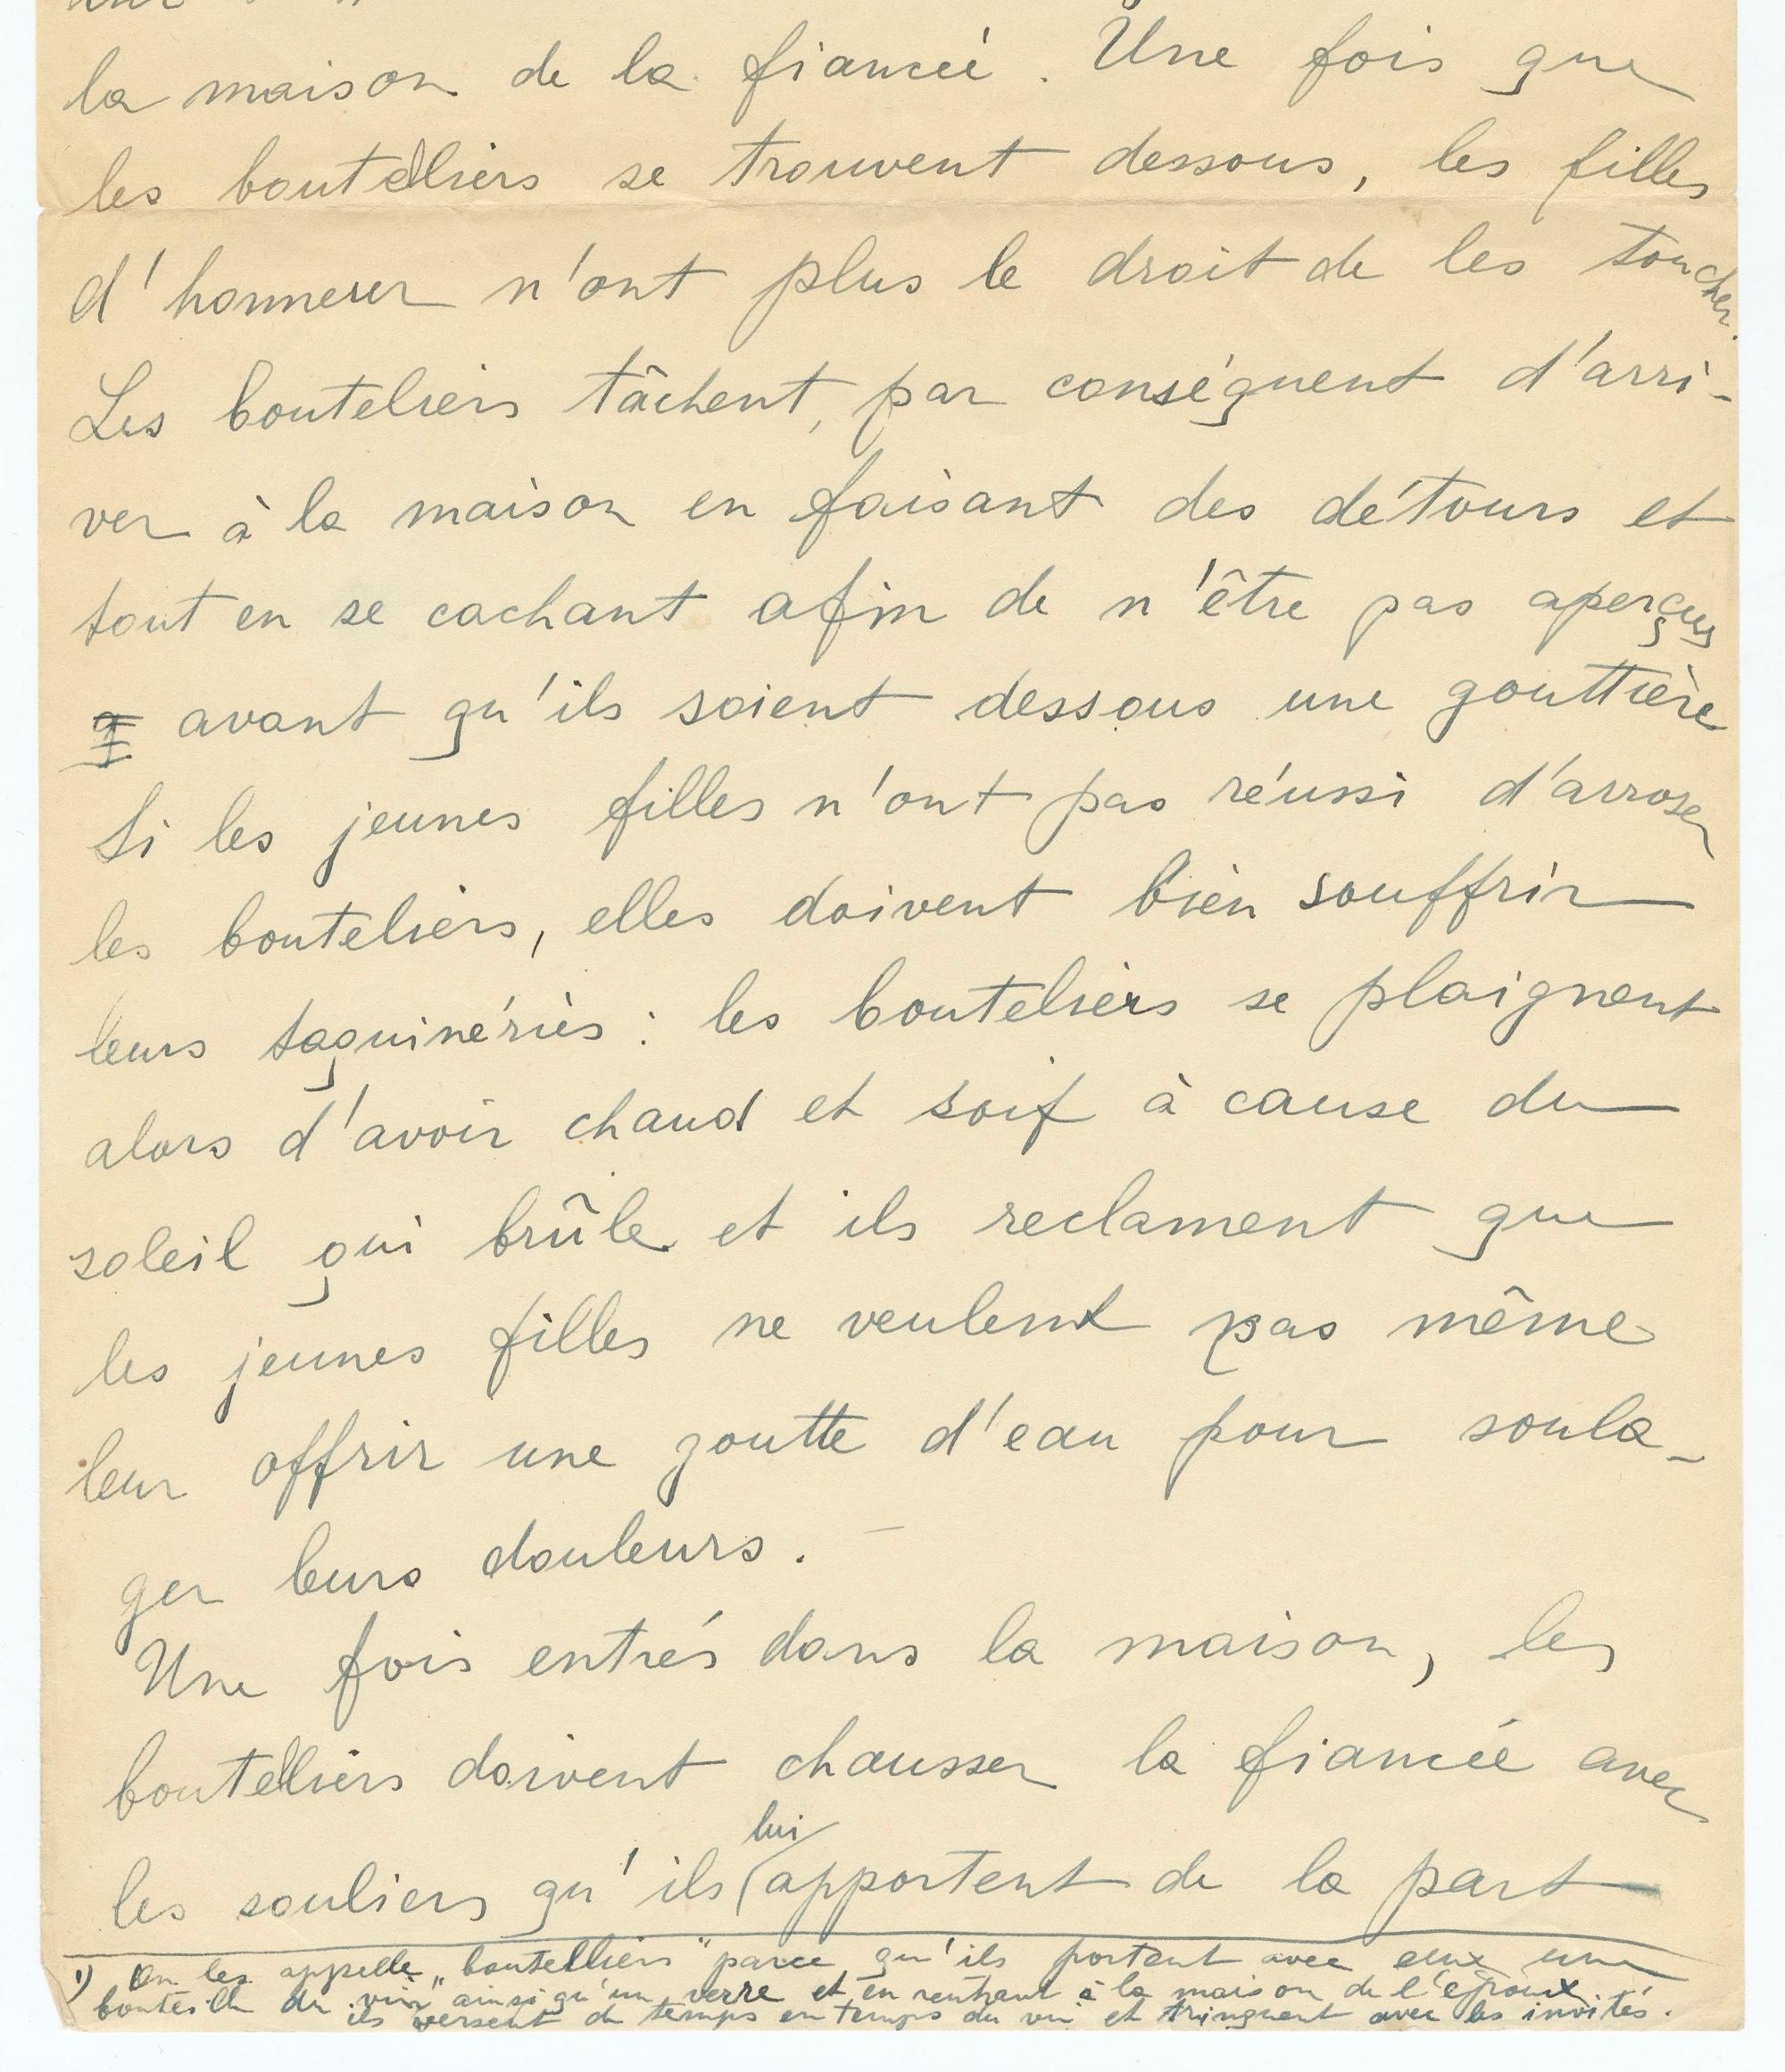 la maison de la fiancée. Une fois que
les bouteliers se trouvent dessous, les filles
d'honneur n'ont plus le droit de les toucher.
Les bouteliers tâchent, par conséquent d'arri-
ver à la maison en faisant des détours et
tout en se cachant afin de n'être pas aperçus
avant qu'ils soient dessous une gouttière
Si les jeunes filles n'ont pas réussi d'arroser
les bouteliers, elles doivent bien souffrir
leurs taquinéries : les bouteliers se plaignent
alors d'avoir chaud et soif à cause du
soleil qui brûle et ils reclament que
les jeunes filles ne veulent pas même
leur offrir une goutte d'eau pour soula-
ger leurs douleurs. –
Une fois entrés dans la maison, les
boutelliers doivent chausser la fiancée avec
les souliers qu'ils lui apportent de la part
1) On les appelle „boutelliers" parce qu'ils portent avec eux une
bouteille du vin ainsi qu'un verre et en rentrant à la maison de l'époux
ils versent de temps en temps du vin et tringuent avec les invités.